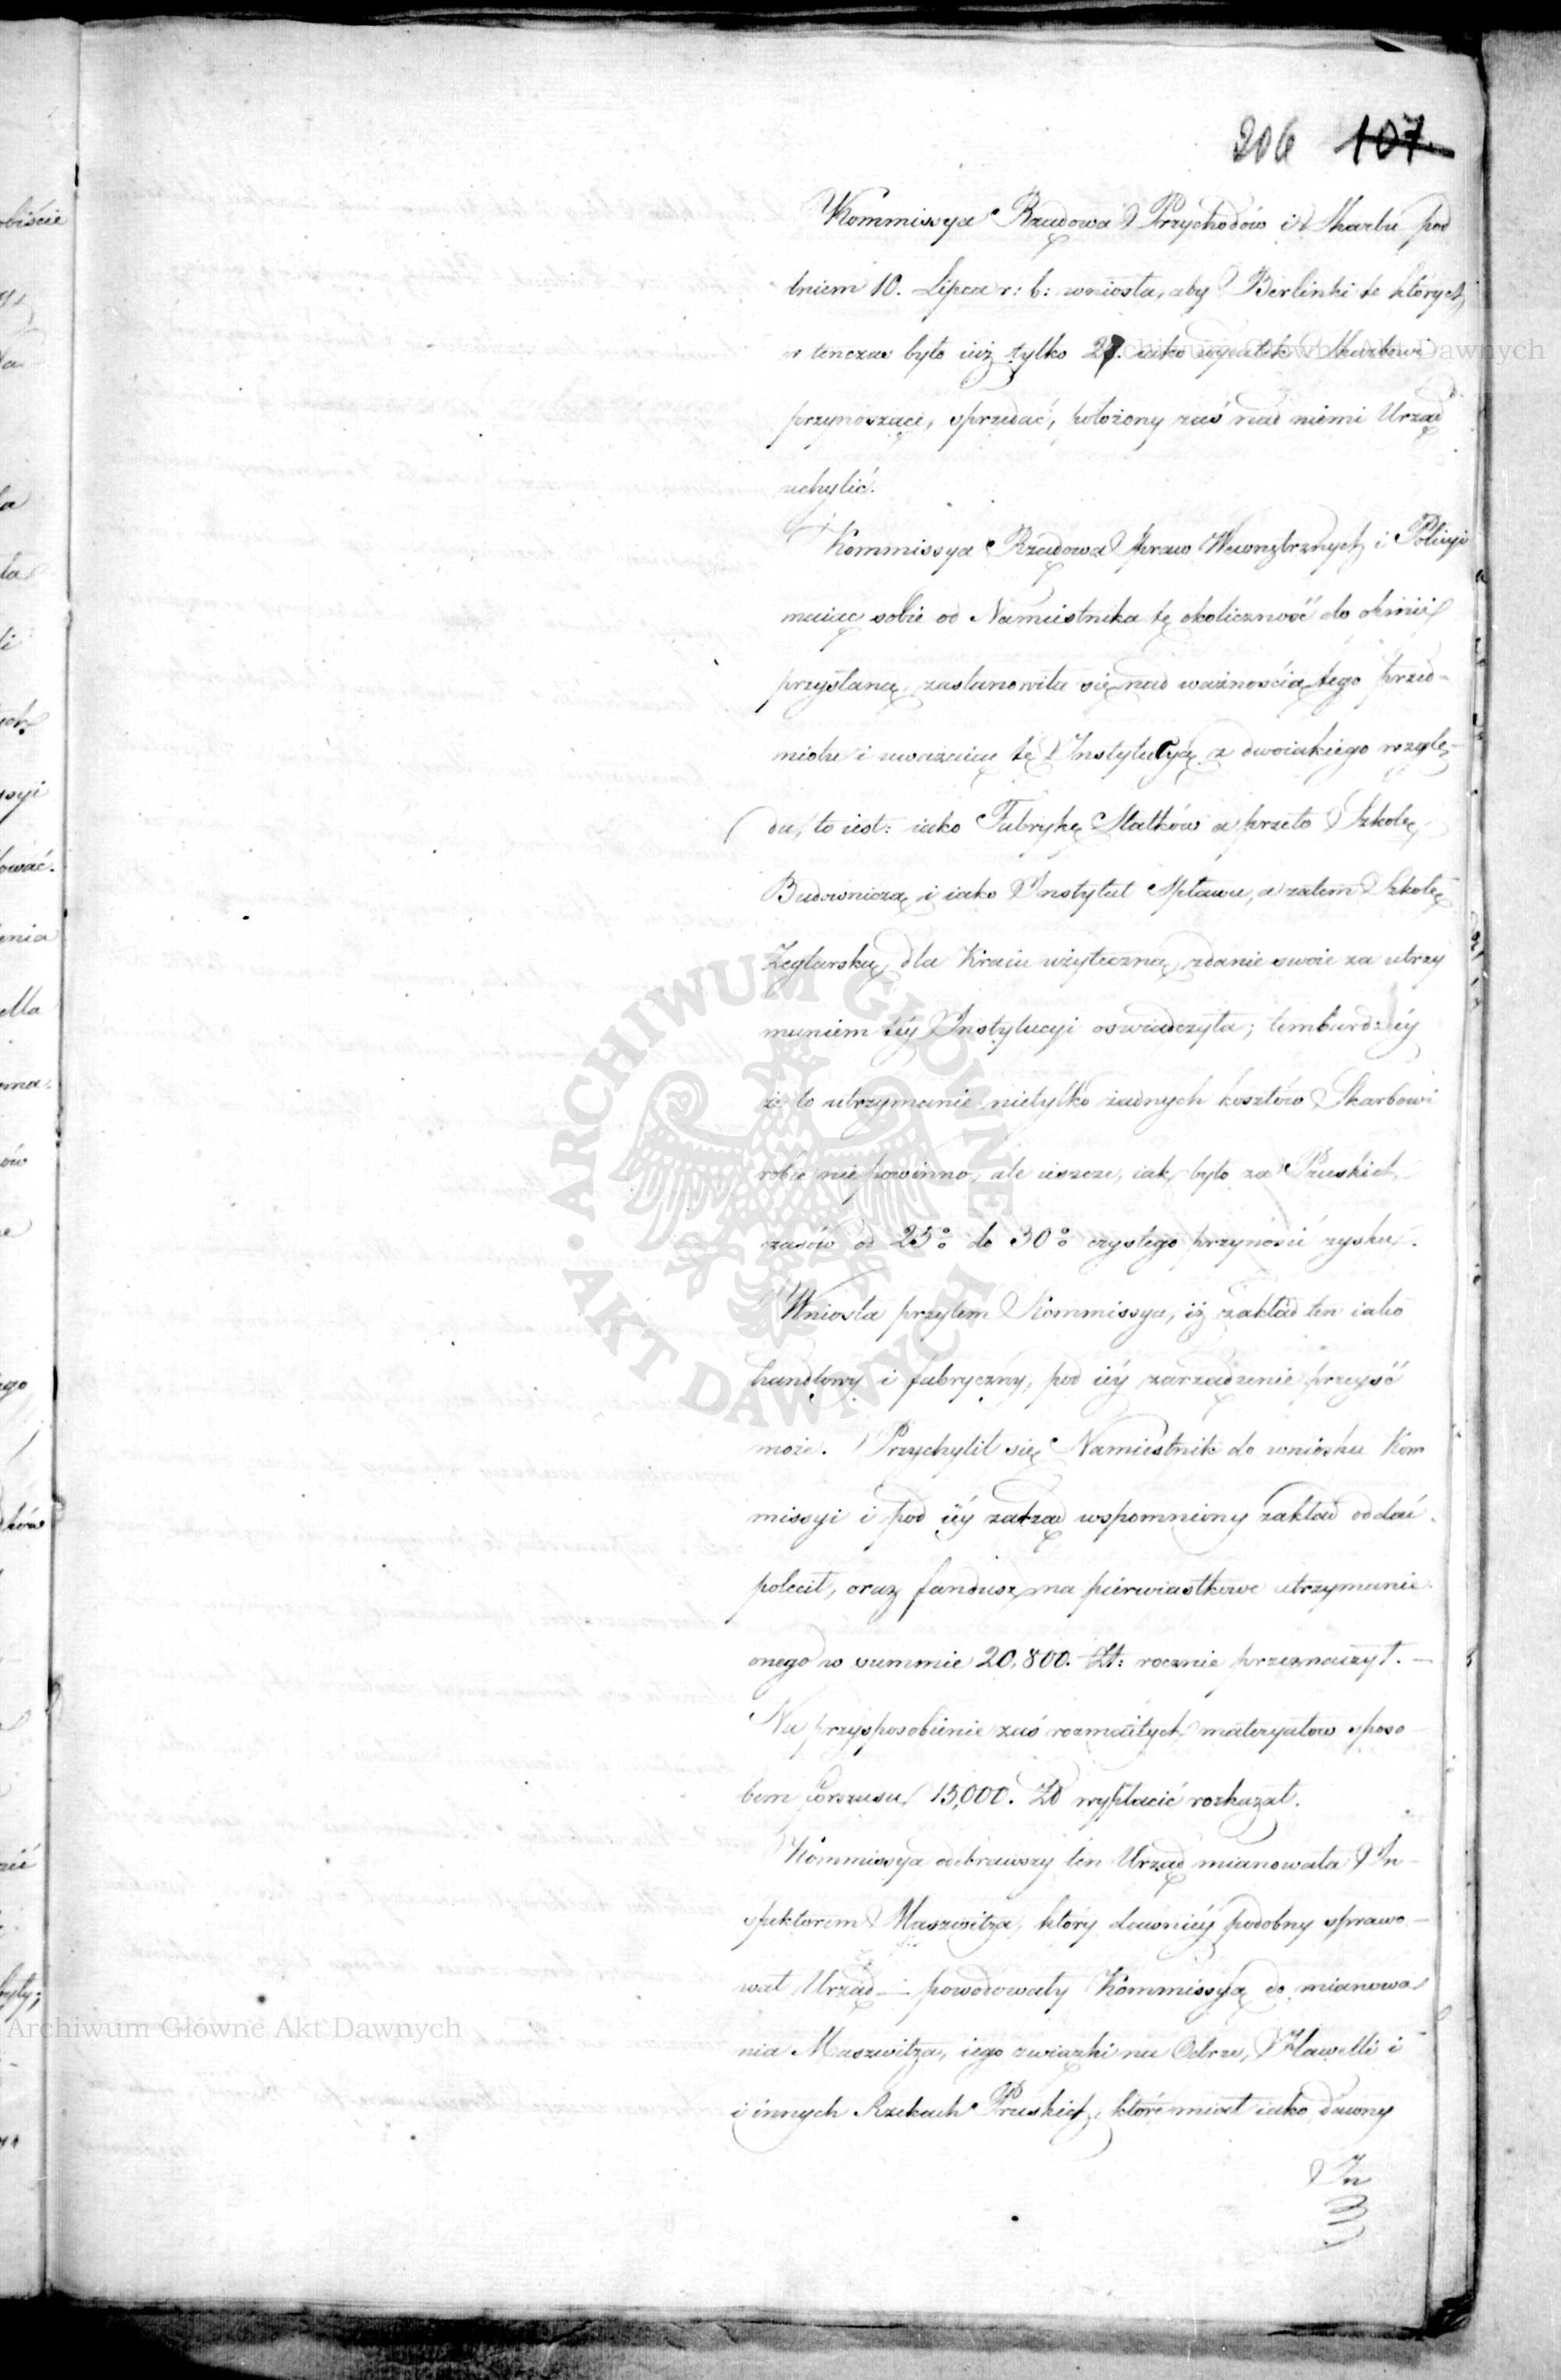 206 107
Kommissya Rządowa Przychodów i Skarbu pod
dniem 10. Lipca r: b: wniosła, aby Berlinki te których
w tenczas było iuż tylko 27. iako wydatek Skarbowi
przynoszące, sprzedać, położony zaś nad niemi Urząd
uchylić.
Kommissya Rządowa Spraw Wewnętrznych i Policyi
maiąc sobie od Namiestnika tę okoliczność do opinii
przysłaną, zastanowiła się nad ważnością tego przed-
miotu i uważaiąc tę Instytucyą z dwoiakiego wzglę-
du, to iest: iako Fabrykę Statków a przeto Szkołę
Budowniczą i iako Instytut Spławu, a zatem Szkołę
Żeglarską, dla Kraiu użyteczną, zdanie swoie za utrzy
maniem téy Instytucyi oswiadczyła; tembardziéy
że to utrzymanie nietylko żadnych kosztów Skarbowi
robić nie powinno, ale ieszcze, iak było za Pruskich
czasów od 25% do 30% czystego przynosić zysku.
Wniosła przytem Kommissya, iż zakład ten iako
handlowy i fabryczny, pod iéy zarządzenie przeyść
może. Przychylił się Namiestnik do wniosku Kom
missyi i pod iéy zarząd wspomniony zakład oddać
polecił, oraz fundusz na pierwiastkowe utrzymanie
onego w summie 20,800. Zł: rocznie przeznaczył. —
Na przysposobienie zaś rozmaitych materyałow sposo
bem forszusu 15,000. Zł wypłacić rozkazał.
Kommissya odebrawszy ten Urząd mianowała In-
spektorem Maszwitza, który dawniéy podobny sprawo-
wał Urząd — powodowały Kommissyą do mianowa
nia Maszwitza, iego związki na Odrze, Hawelli i
i innych Rzekach Pruskich, które miał iako dawny
In
Archiwum Główne Akt Dawnych
Archiwum Główne Akt Dawnych
ARCHIWUM GŁÓWNE AKT DAWNYCH